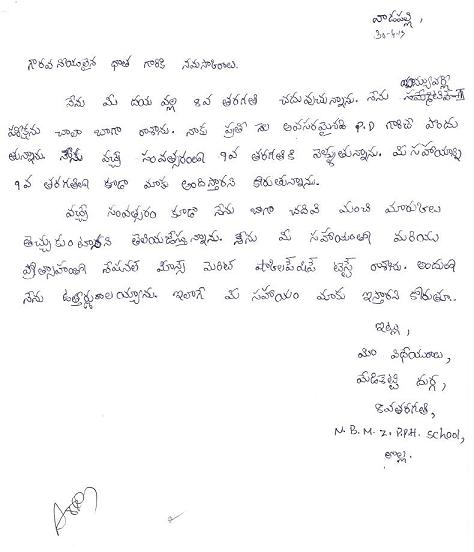 వాడపల్లి,
30-4-13
గౌరవనీయులైన ధాత గారికి నమస్కారాలు.
నేను మీ దయ వల్ల 8వ తరగతి చదువుచున్నాను. నేను
పరీక్షను చాలా బాగా రాశాను. నాకు ప్రతి నెల అవసరమైనవి P.D గారిచే పొందు
తున్నాను. నేను వచ్చే సంవత్సరంలో 9వ తరగతికి వెళ్ళుతున్నాను. మీ సహాయాన్ని
9వ తరగతిలో కూడా మాకు అందిస్తారని కోరుతున్నాను.
వచ్చే సంవత్సరం కూడా నేను బాగా చదివి మంచి మారుకులు
తెచ్చుకుంటానని తెలియజేస్తున్నాను. నేను మీ సహాయంతో మరియు
ప్రోత్సాహంతో నేషనల్ మీన్స్ మెరిట్ స్కాలర్‌షిప్ టెస్ట్ రాశాను. అందులో
నేను ఉత్తీర్ణురాలయ్యాను. ఇలాగే మీ సహాయం మాకు ఇస్తారని కోరుతూ..
ఇట్లు,
మీ విధేయురాలు,
మేడిశెట్టి దుర్గ,
8వతరగతి,
N.B.M.Z.P.P.H. School,